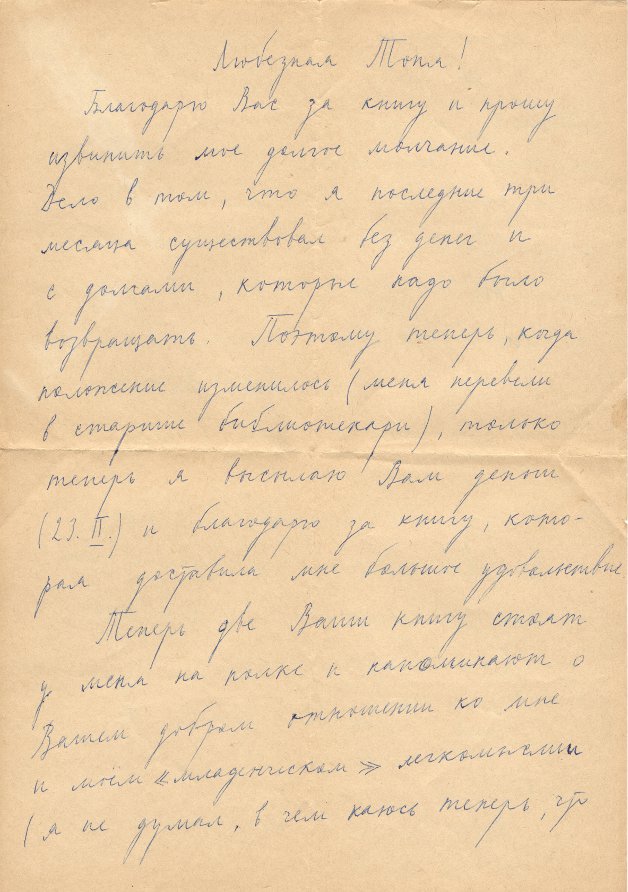 Любезная Тоня!
Благодарю Вас за книгу и прошу
извинить мое долгое молчание.
Дело в том, что я последние три
месяца существовал без денег и
с долгами, которые надо было
возвращать. Поэтому теперь, когда
положение изменилось (меня перевели
в старшие библиотекари), только
теперь я высылаю Вам деньги
(23.II.) и благодарю за книгу, кото-
рая доставила мне большое удовольствие
Теперь две Ваши книгу стоят
у меня на полке и напоминают о
Вашем добром отношении ко мне
и моём «младенческом» легкомыслии
(я не думал, в чем каюсь теперь, что